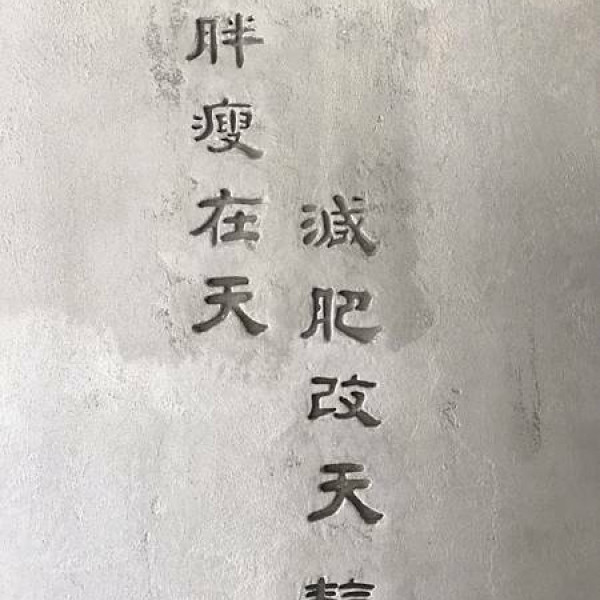 胖瘦在天
減肥改天